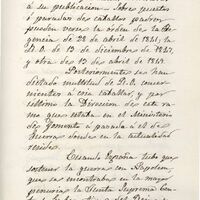 á su publicacion sobre puestos
ó paradas de caballos padres
pueden verse la orden de la Re-
gencia de 28 de abril de 1841, la
R.O. de 13 de diciembre de 1847,
y otra de 13 de abril de 1849.
Posteriormente se han
dictado multitud de R.O. concer-
nientes á cria caballar, y por
último la Direccion de este ra-
mo que estaba en el Ministerio
de Fomento á pasado á el de
Guerra donde en la actualidad
reside.
Cuando España tubo que
sostener la guerra con Napoleon
que se encontraba en la mayor
penuria la Junta Suprema Cen-